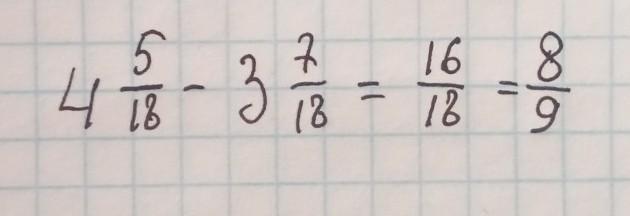 4 5/18 - 3 7/18 = 16/18 = 8/9